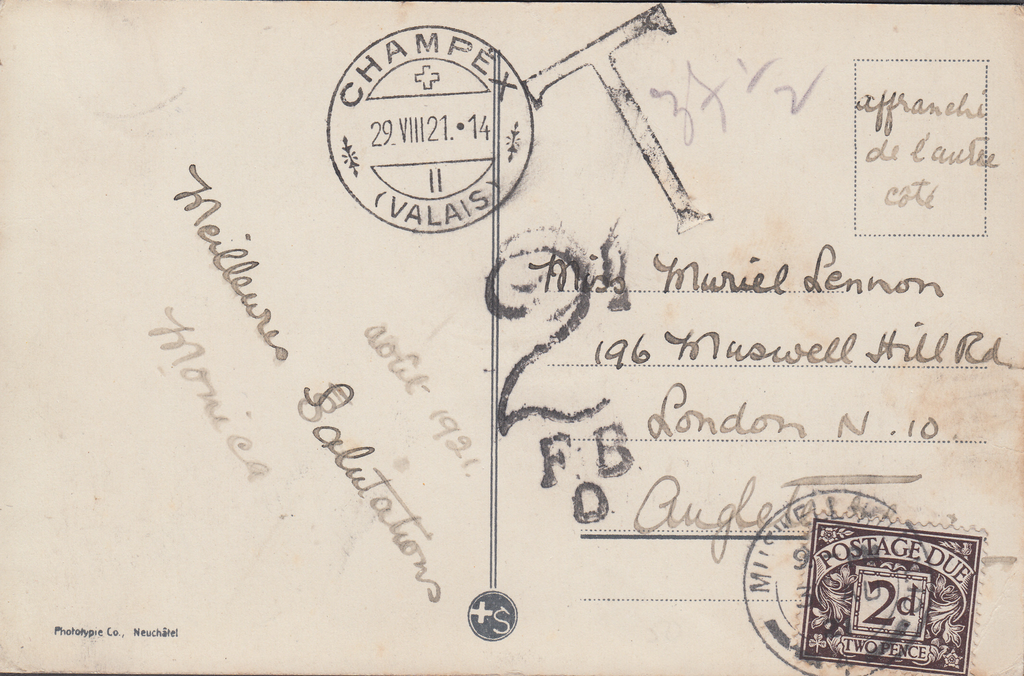 CHAMPEX
29.VIII 21.•14
II
(VALAIS)
T
affranchi
de l'autre
côté
Meilleures Salutations
Monica
août 1921.
2d
F.B
D
Miss Muriel Lennon
196 Muswell Hill Rd
London N.10.
Angleterre
MUSWELL
POSTAGE DUE
2d
TWO PENCE
+S
Phototypie Co., Neuchâtel